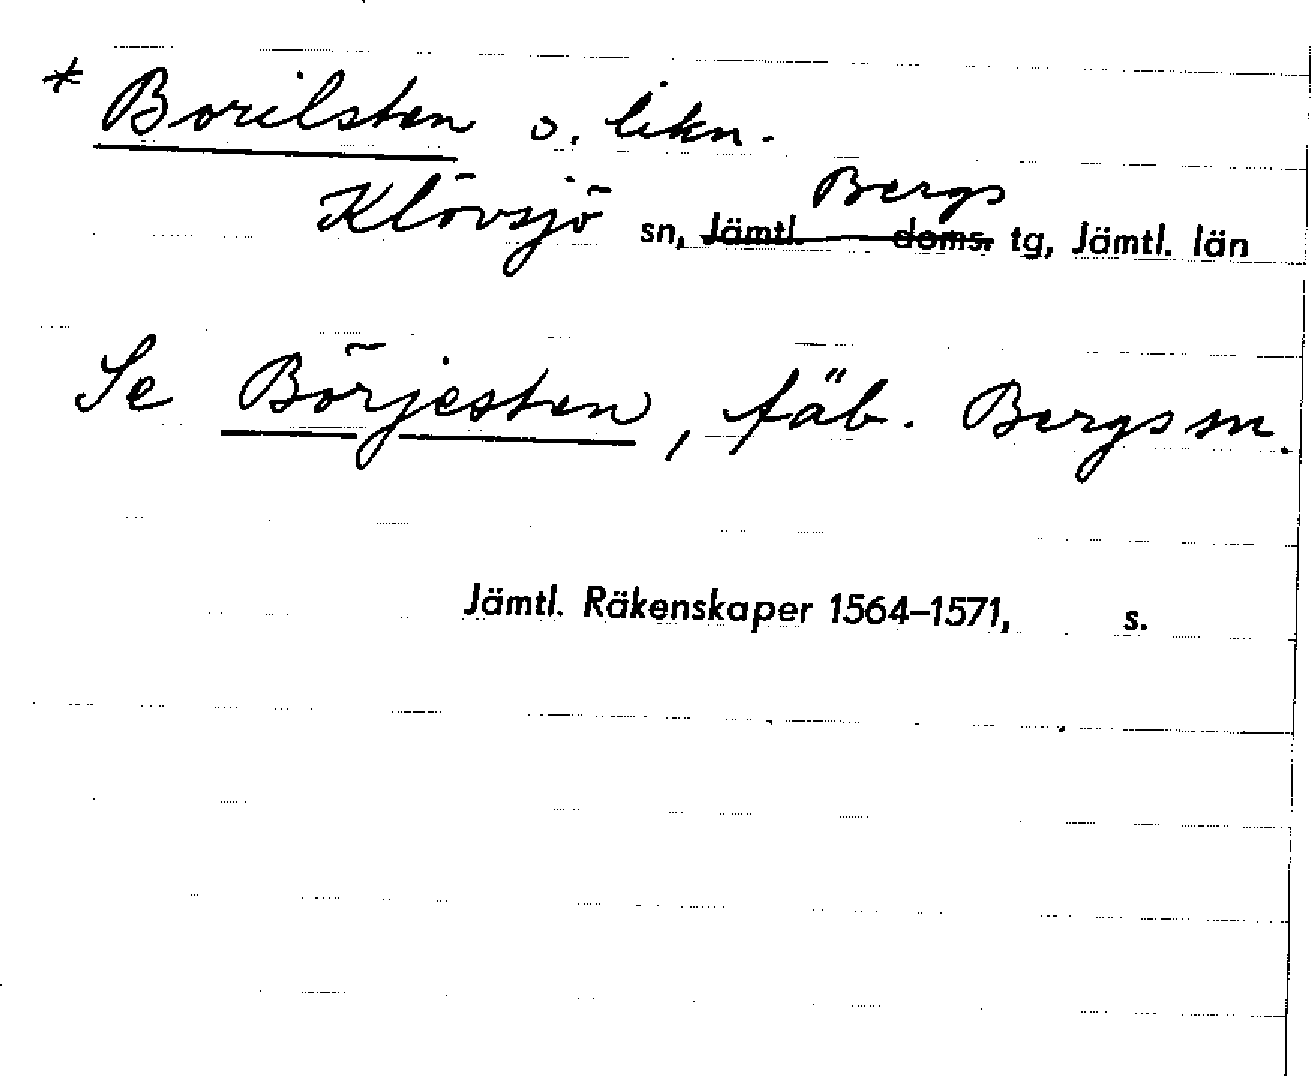 * Borilsten o. likn.
Klövsjö sn, Jämtl. doms. Bergs tg, Jämtl. län
Se Börjesten, fäb. Bergs sn.
Jämtl. Räkenskaper 1564–1571, s.